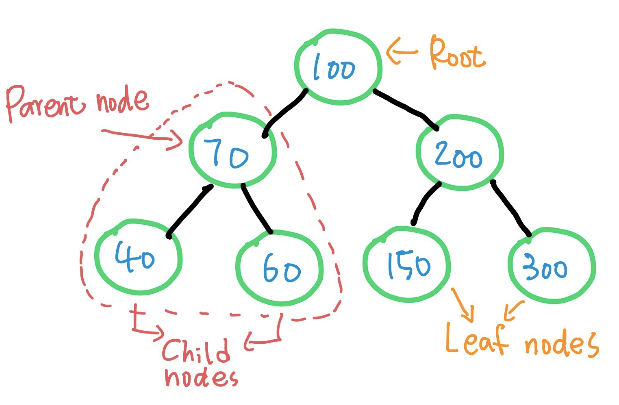 100
Root
Parent node
70
200
40
60
150
300
Child
nodes
Leaf nodes